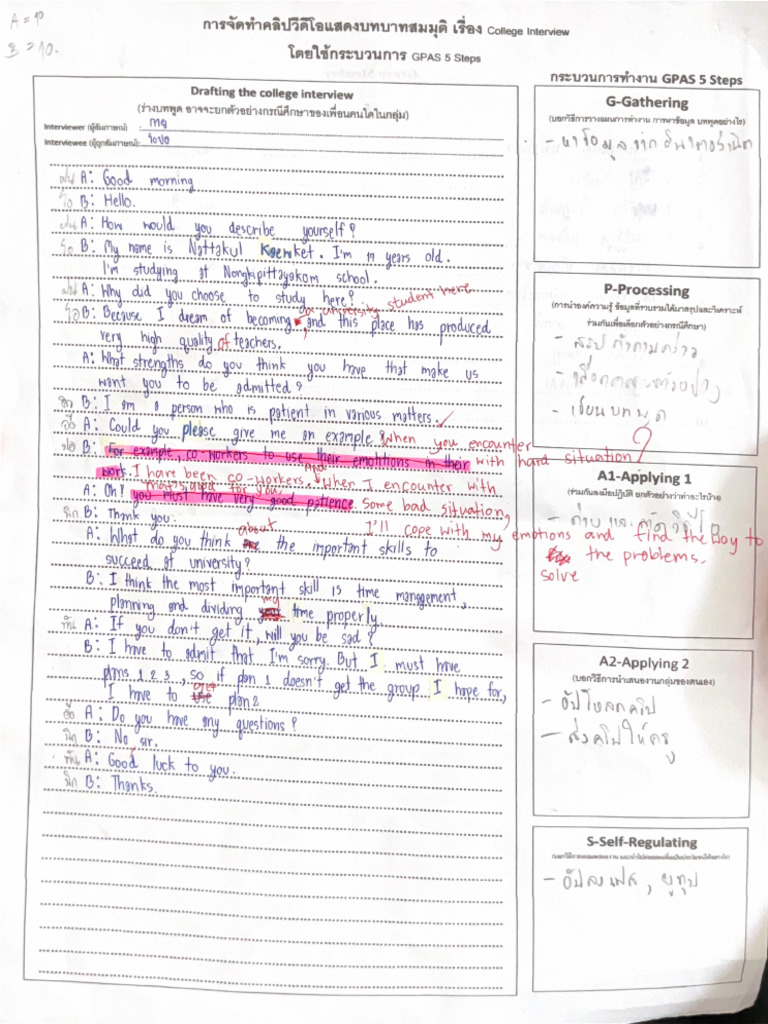 A = 10
B = 10.
การจัดทำคลิปวีดีโอแสดงบทบาทสมมุติ เรื่อง College Interview
โดยใช้กระบวนการ GPAS 5 Steps
Drafting the college interview
(ร่างบทพูด อาจจะยกตัวอย่างกรณีศึกษาของเพื่อนคนใดในกลุ่ม)
Interviewer (ผู้สัมภาษณ์):
Interviewee (ผู้ถูกสัมภาษณ์):
A: Good morning
B: Hello.
A: How would you describe yourself?
B: My name is Nattakul Kaewket. I'm 17 years old.
I'm studying at Nongkipittayakom school.
A: Why did you choose to study here?
university student here
B: Because I dream of becoming and this place has produced
very high quality of teachers.
A: What strengths do you think you have that make us
want you to be admitted?
B: I am a person who is patient in various matters.
A: Could you please give me an example? When you encounter
with hard situation?
B: For example, co-workers to use their emotitions in their
work I have been co-workers, And When I encounter with
that's good for you
A: Oh! you must have very good patience. some bad situation,
B: Thank you. I'll cope with my emotions and find the way to
solve the problems.
A: What do you think about the important skills to
succeed of university?
B: I think the most important skill is time management,
planning and dividing my time properly.
A: If you don't get it, will you be sad?
B: I have to admit that I'm sorry. But I must have
plans 1 2 3, so if plan 1 doesn't get the group I hope for,
I have to plan 2
A: Do you have any questions?
B: No sir.
A: Good luck to you.
B: Thanks.
กระบวนการทำงาน GPAS 5 Steps
G-Gathering
(บอกวิธีการวางแผนการทำงาน การหาข้อมูล บทพูดอย่างไร)
- หาข้อมูลจากอินเตอร์เน็ต
P-Processing
(การนำองค์ความรู้ ข้อมูลที่รวบรวมได้มาสรุปและวิเคราะห์
ร่วมกันเพื่อเลือกตัวอย่างกรณีศึกษา)
- สรุปคำถามคร่าว
- เขียนบทพูด
A1-Applying 1
(ร่วมกันลงมือปฏิบัติ ยกตัวอย่างว่าทำอะไรบ้าง)
- ถ่ายและตัดวิดีโอ
A2-Applying 2
(บอกวิธีการนำเสนองานกลุ่มของตนเอง)
- อัปโหลดคลิป
- ส่งคลิปให้ครู
S-Self-Regulating
- อัปลงเฟส, ยูทูป